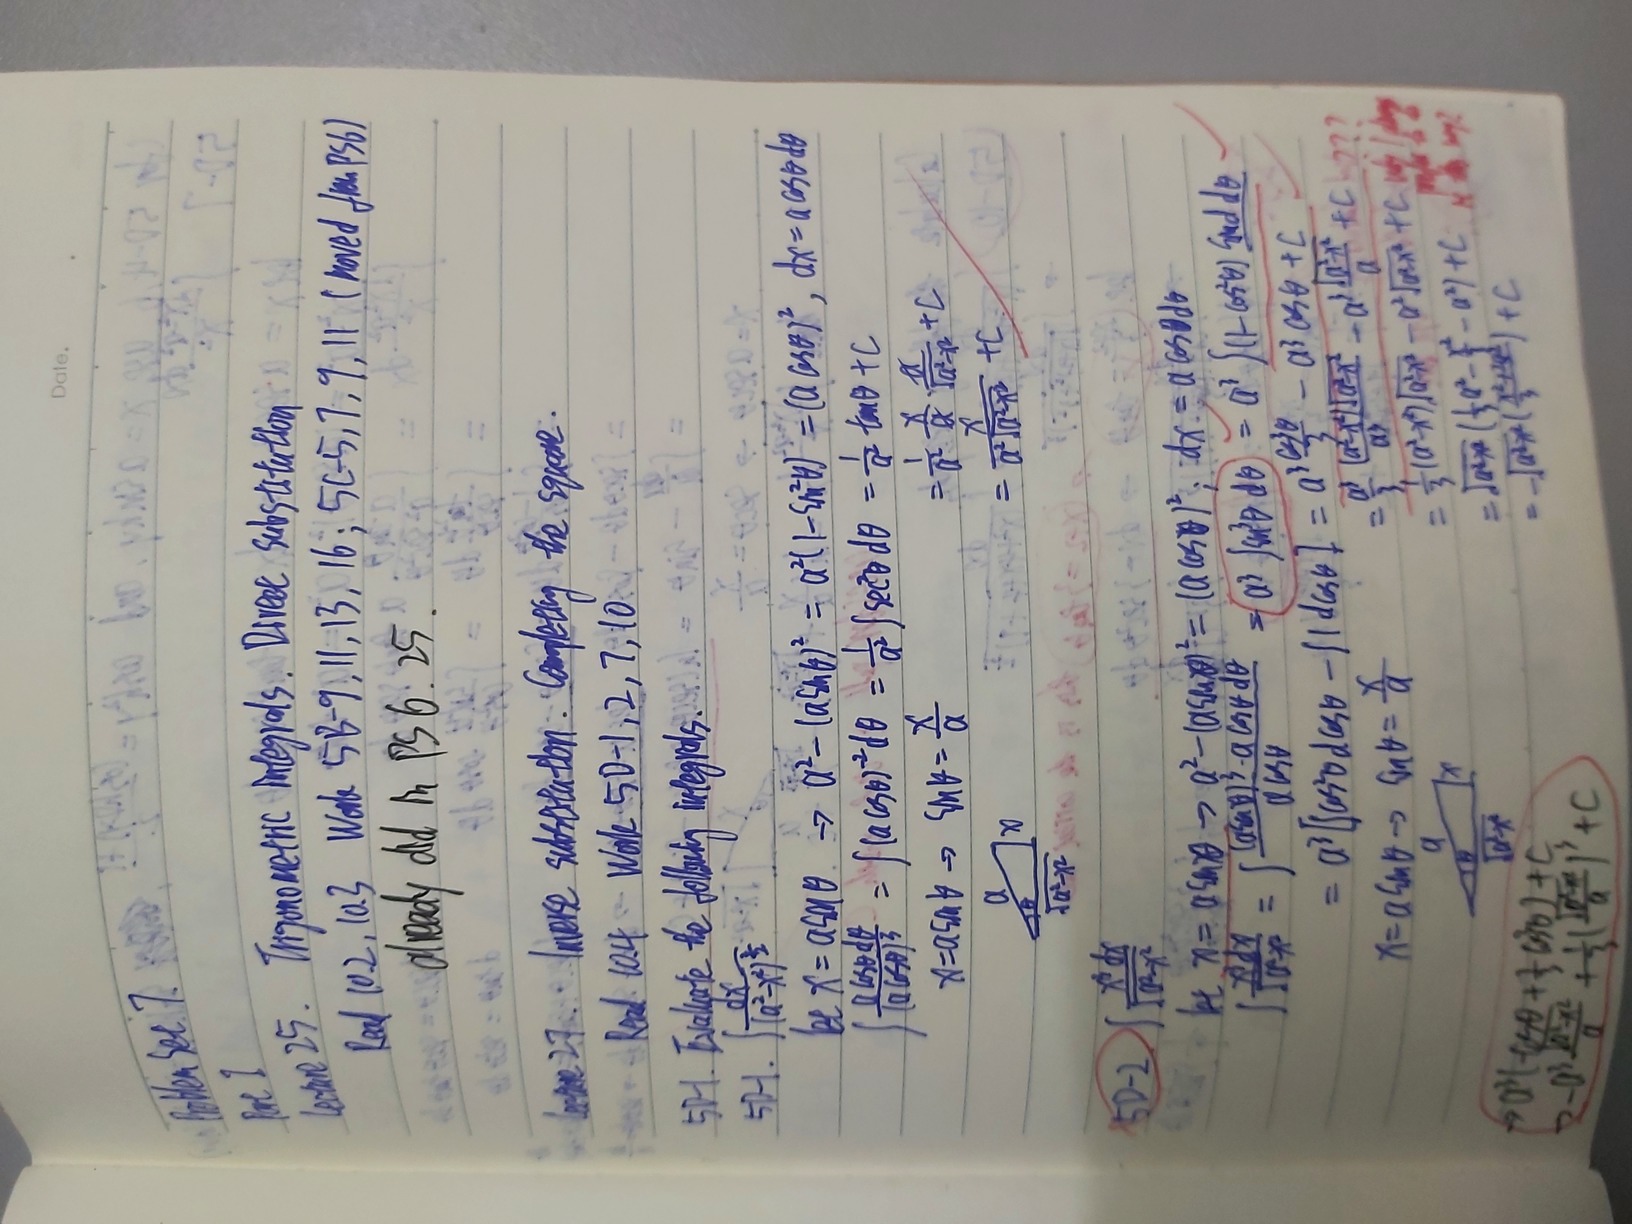 Date.
Problem Set 7.
Part I
Lecture 25. Trigonometric integrals. Direct substitution
Read 10.2, 10.3 Work 5B-9, 11, 13, 16; 5C-5, 7, 9, 11 (moved from PS6)
already did in PS 6. 25.
Lecture 27. Inverse substitution. Completing the square.
Read 10.4 Work 5D-1, 2, 7, 10
5D-1. Evaluate the following integrals.
5D-1. ∫ dx/(a²-x²)^(3/2)
let x = a sinθ → a²-(a sinθ)² = a²(1-sin²θ) = (a cosθ)², dx = a cosθ dθ
∫ a cosθ dθ/(a cosθ)³ = ∫(a cosθ)⁻² dθ = 1/a² ∫sec²θ dθ = 1/a² tanθ + C
x = a sinθ → sinθ = x/a = 1/a² · x/a · a/√(a²-x²) + C
= x/(a²√(a²-x²)) + C
a x θ √(a²-x²)
5D-2 ∫ x³ dx/√(a²-x²)
let x = a sinθ → a²-(a sinθ)² = (a cosθ)², dx = a cosθ dθ
∫ x³dx/√(a²-x²) = ∫ (a sinθ)³·a cosθ dθ/(a cosθ) = a³∫sin³θ dθ = a³ ∫(1-cos²θ) sinθ dθ
= a³[∫cos²θ dcosθ - ∫1 dcosθ] = a³ cos³θ/3 - a³ cosθ + C
= a³/3 (a²-x²)√(a²-x²)/a³ - a³ √(a²-x²)/a + C ???
x = a sinθ → sinθ = x/a
= 1/3 (a²-x²)√(a²-x²) - a²√(a²-x²) + C why I
a x θ √(a²-x²)
= √(a²-x²) (1/3 a² - x²/3 - a²) + C
= -√(a²-x²) ((x²+2a²)/3) + C
→ a³(-cosθ + 1/3 cos³θ) + C
→ -a³ √(a²-x²)/a + 1/3 (√(a²-x²)/a)³ + C